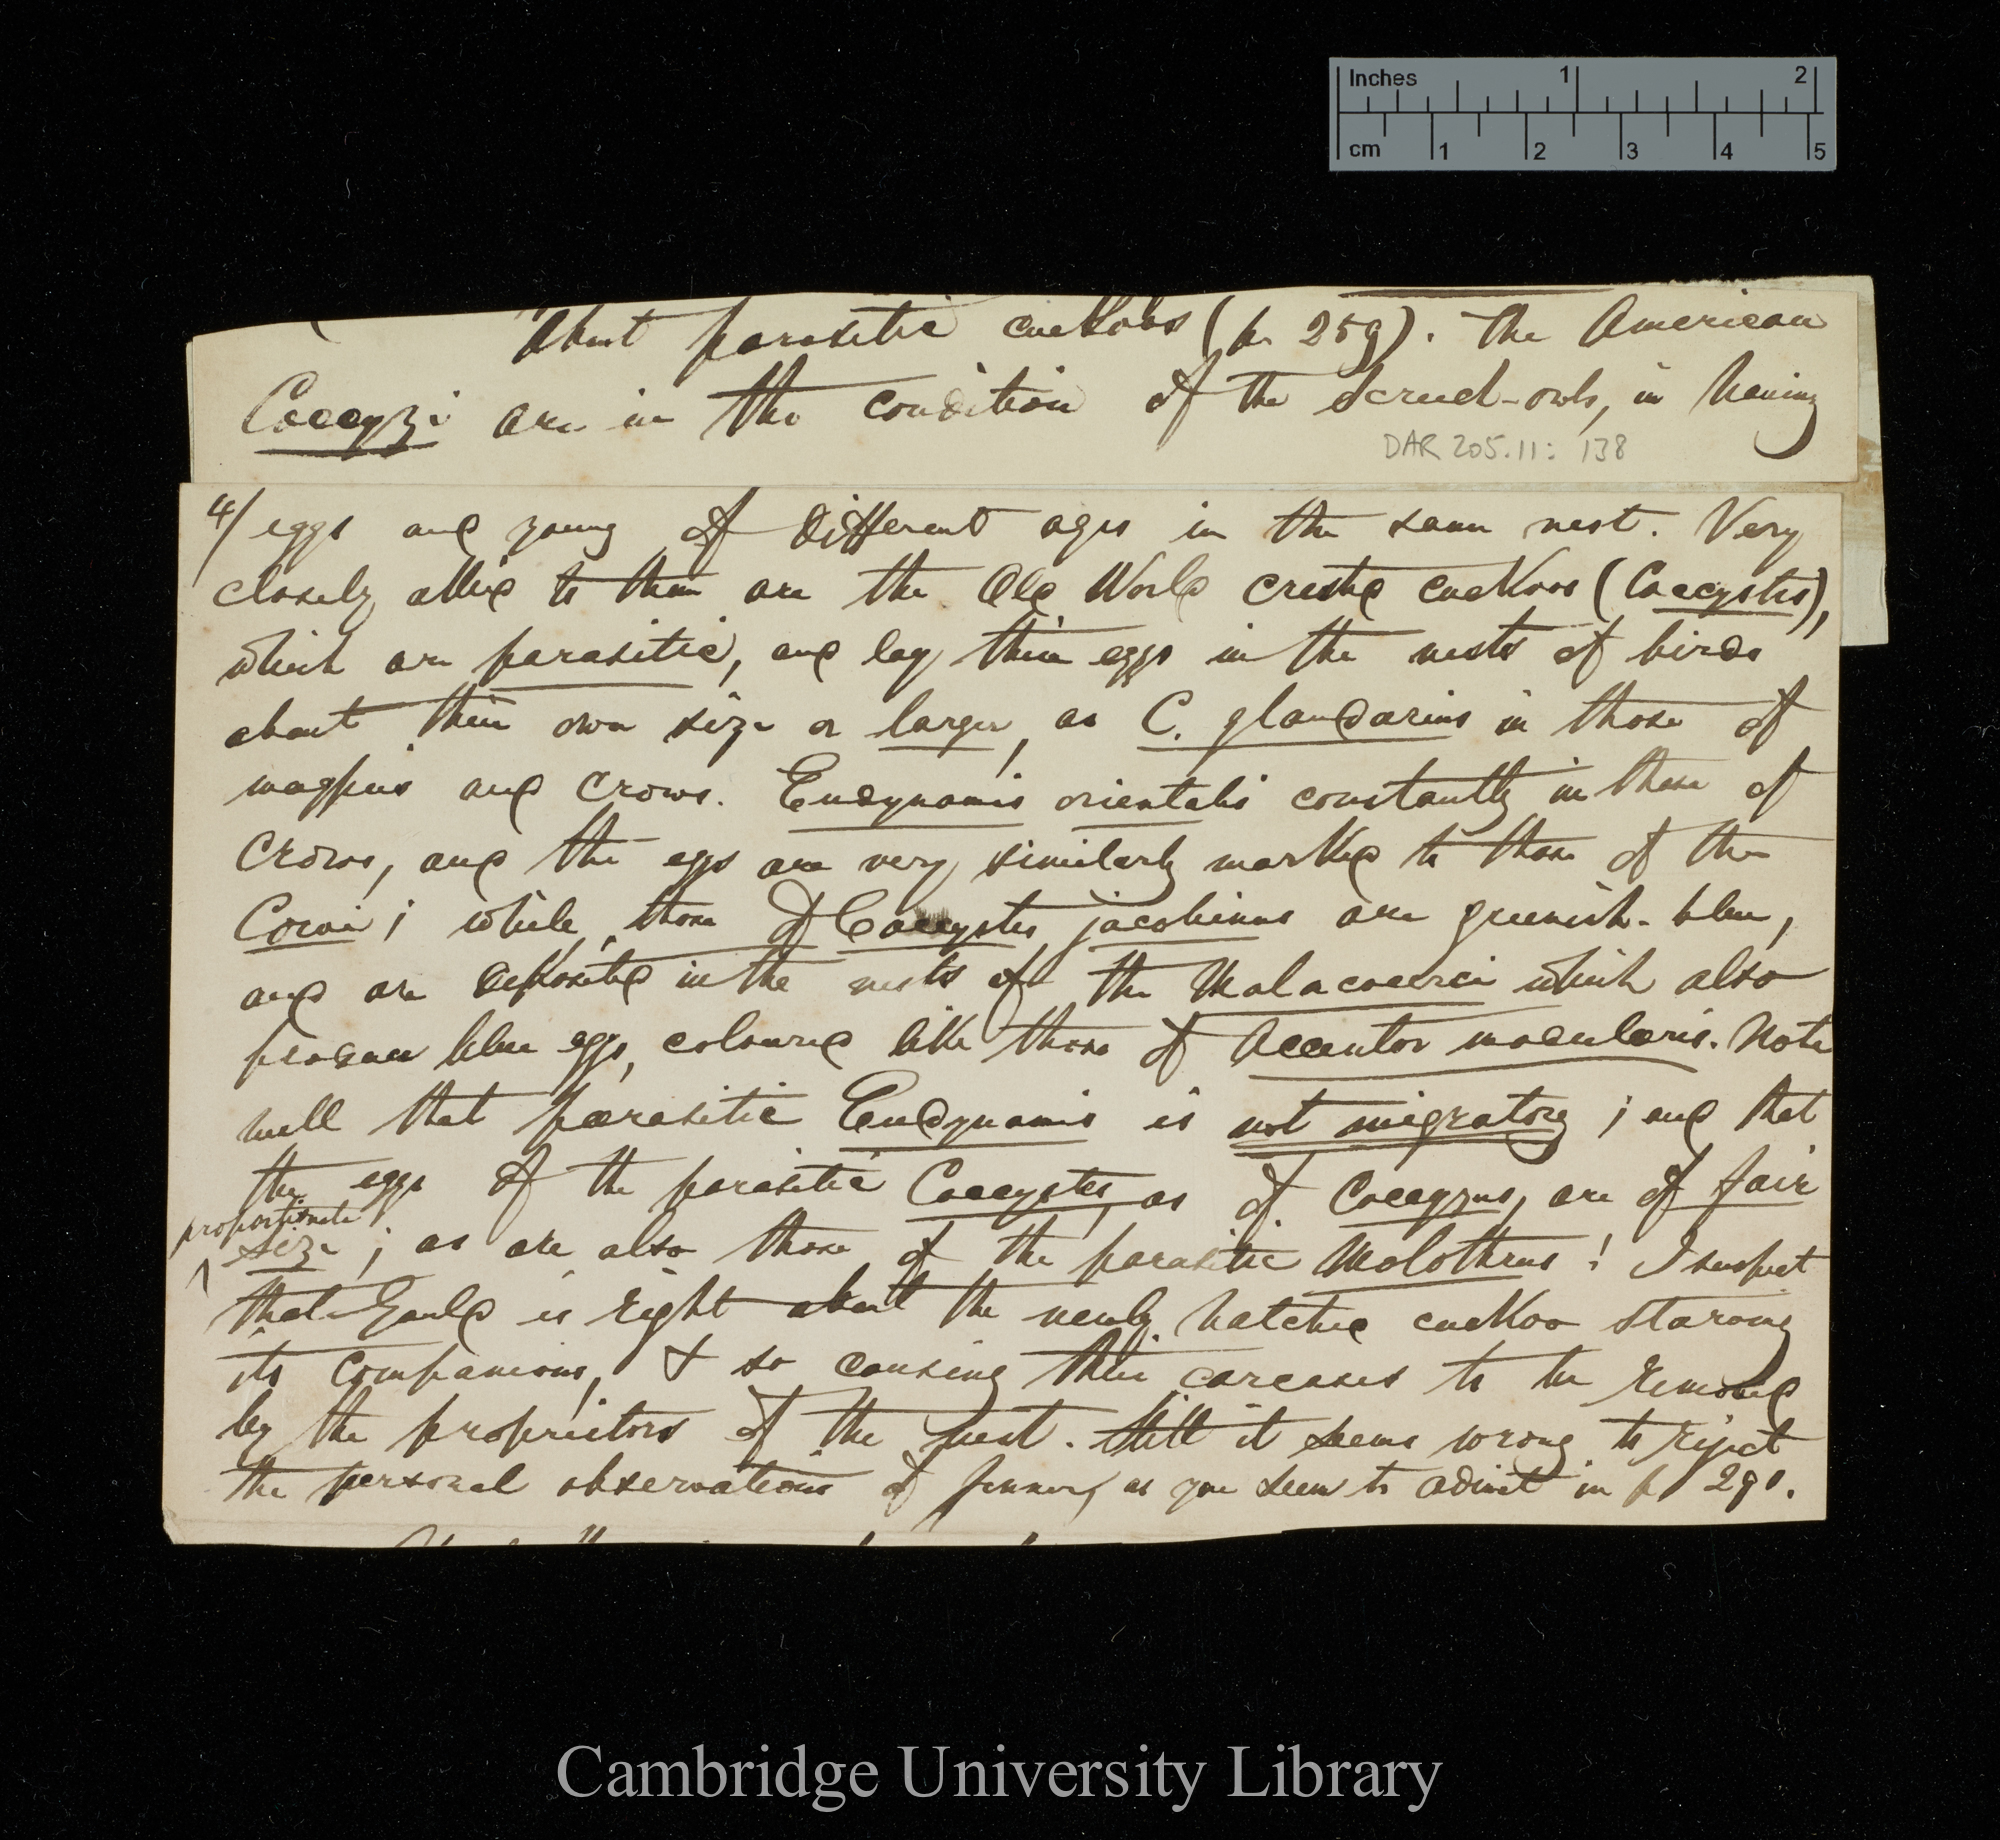 Inches 1 2
cm 1 2 3 4 5
About parasitic cuckoos (p. 259). The American
Coccyzi are in the condition of the screech-owls, in having
DAR 205.11: 138
4/ eggs and young of different ages in the same nest. Very
closely allied to them are the Old World crested cuckoos (Coccystes),
which are parasitic, and lay their eggs in the nests of birds
about their own size or larger, as C. glandarius in those of
magpies and crows. Eudynamis orientalis constantly in those of
Crows, and the eggs are very similarly marked to those of the
Corvi; while those of Coccystes jacobinus are greenish-blue,
and are deposited in the nests of the Malacocerci which also
produce blue eggs, coloured like those of Accentor modularis. Note
well that parasitic Eudynamis is not migratory; and that
the eggs of the parasitic Coccystes, as of Coccyzus, are of fair
proportionate
size; as are also those of the parasitic Molothrus! I suspect
that Gould is right about the newly hatched cuckoo starving
its companions, & so causing their carcases to be removed
by the proprietors of the nest. Still it seems wrong to reject
the personal observations of Jenner, as you seem to admit in p 290.
Cambridge University Library